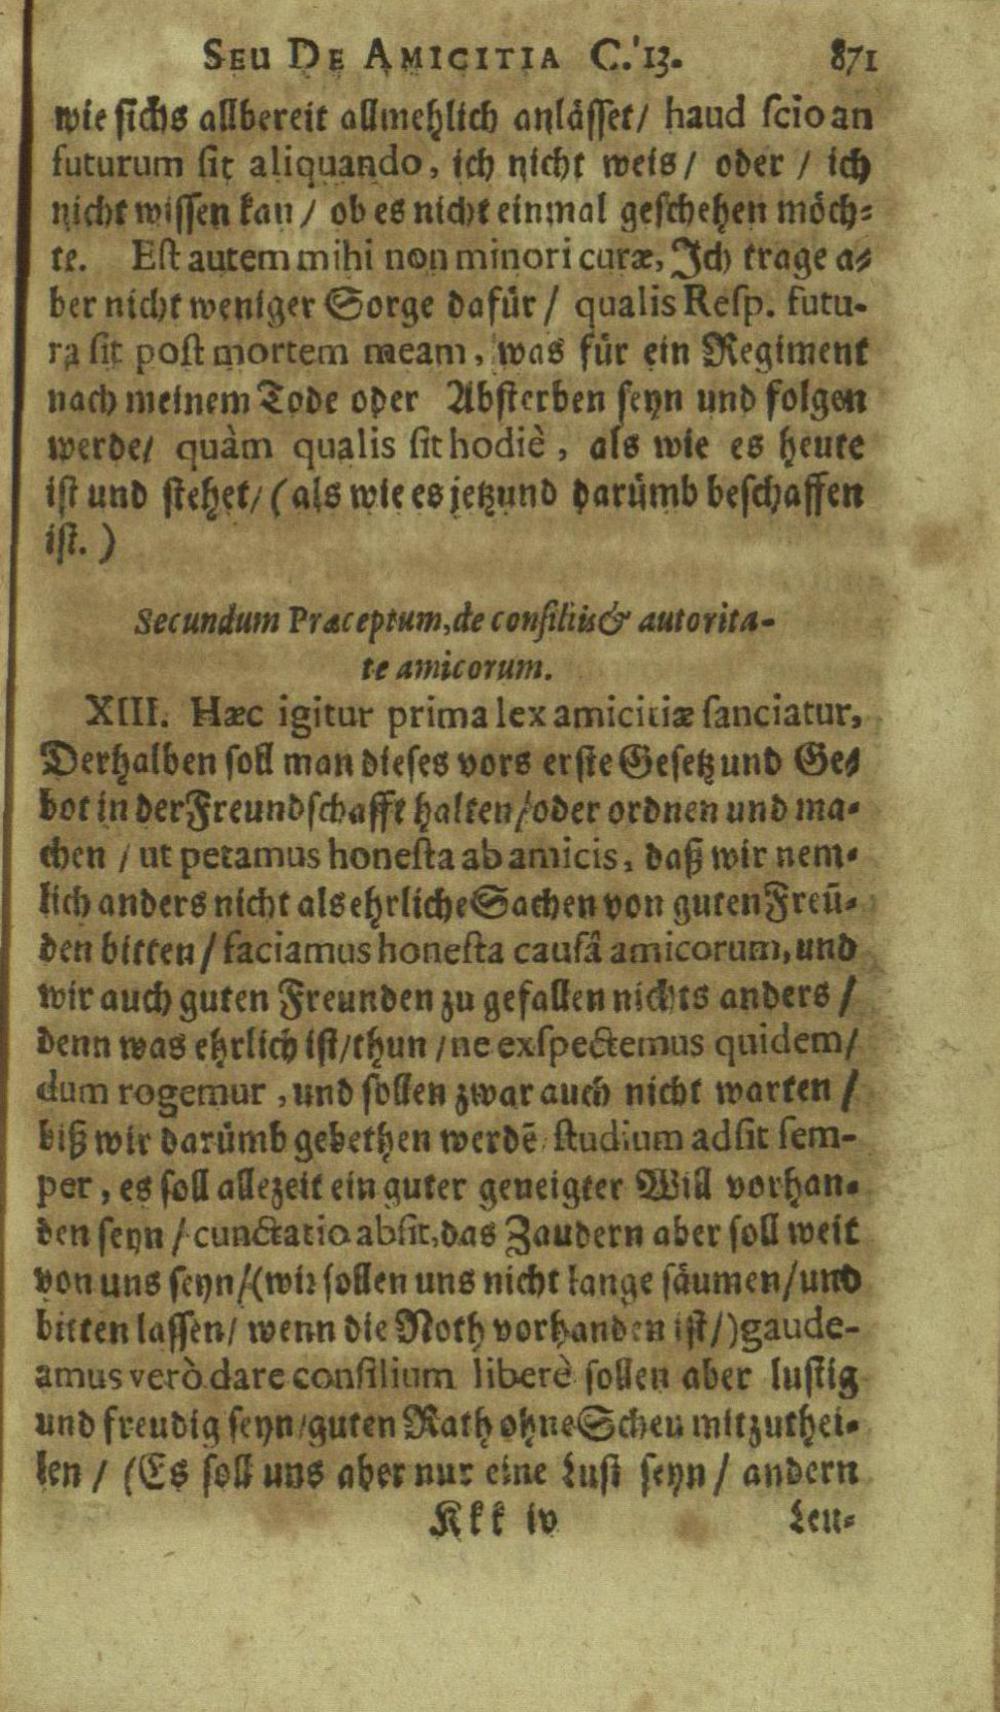 SEU DE AMICITIA C. 13. 871
wie sichs allbereit allmehlich anlässet/ haud scio an
futurum sit aliquando, ich nicht weis/ oder / ich
nicht wissen kan / ob es nicht einmal geschehen möch⸗
te. Est autem mihi non minori curæ, Ich trage a⸗
ber nicht weniger Sorge dafür / qualis Resp. futu-
ra sit post mortem meam, was für ein Regiment
nach meinem Tode oder Absterben seyn und folgen
werde/ quàm qualis sit hodiè, als wie es heute
ist und stehet/ (als wie es jetzund darümb beschaffen
ist.)
Secundum Præceptum, de consiliis & autorita-
te amicorum.
XIII. Hæc igitur prima lex amicitiæ sanciatur,
Derhalben soll man dieses vors erste Gesetz und Ge⸗
bot in der Freundschafft halten/ oder ordnen und ma⸗
chen / ut petamus honesta ab amicis, daß wir nem⸗
lich anders nicht als ehrliche Sachen von guten Freũ⸗
den bitten / faciamus honesta causâ amicorum, und
wir auch guten Freunden zu gefallen nichts anders /
denn was ehrlich ist/ thun / ne exspectemus quidem/
dum rogemur, und sollen zwar auch nicht warten /
biß wir darümb gebethen werdẽ studium adsit sem-
per, es soll allezeit ein guter geneigter Will vorhan⸗
den seyn / cunctatio absit, das Zaudern aber soll weit
von uns seyn/ (wir sollen uns nicht lange säumen/ und
bitten lassen/ wenn die Noth vorhanden ist/) gaude-
amus verò dare consilium liberè sollen aber lustig
und freudig seyn/ guten Rath ohne Scheu mitzuthei⸗
len / (Es soll uns aber nur eine Lust seyn / andern
Kkk iv Leu⸗